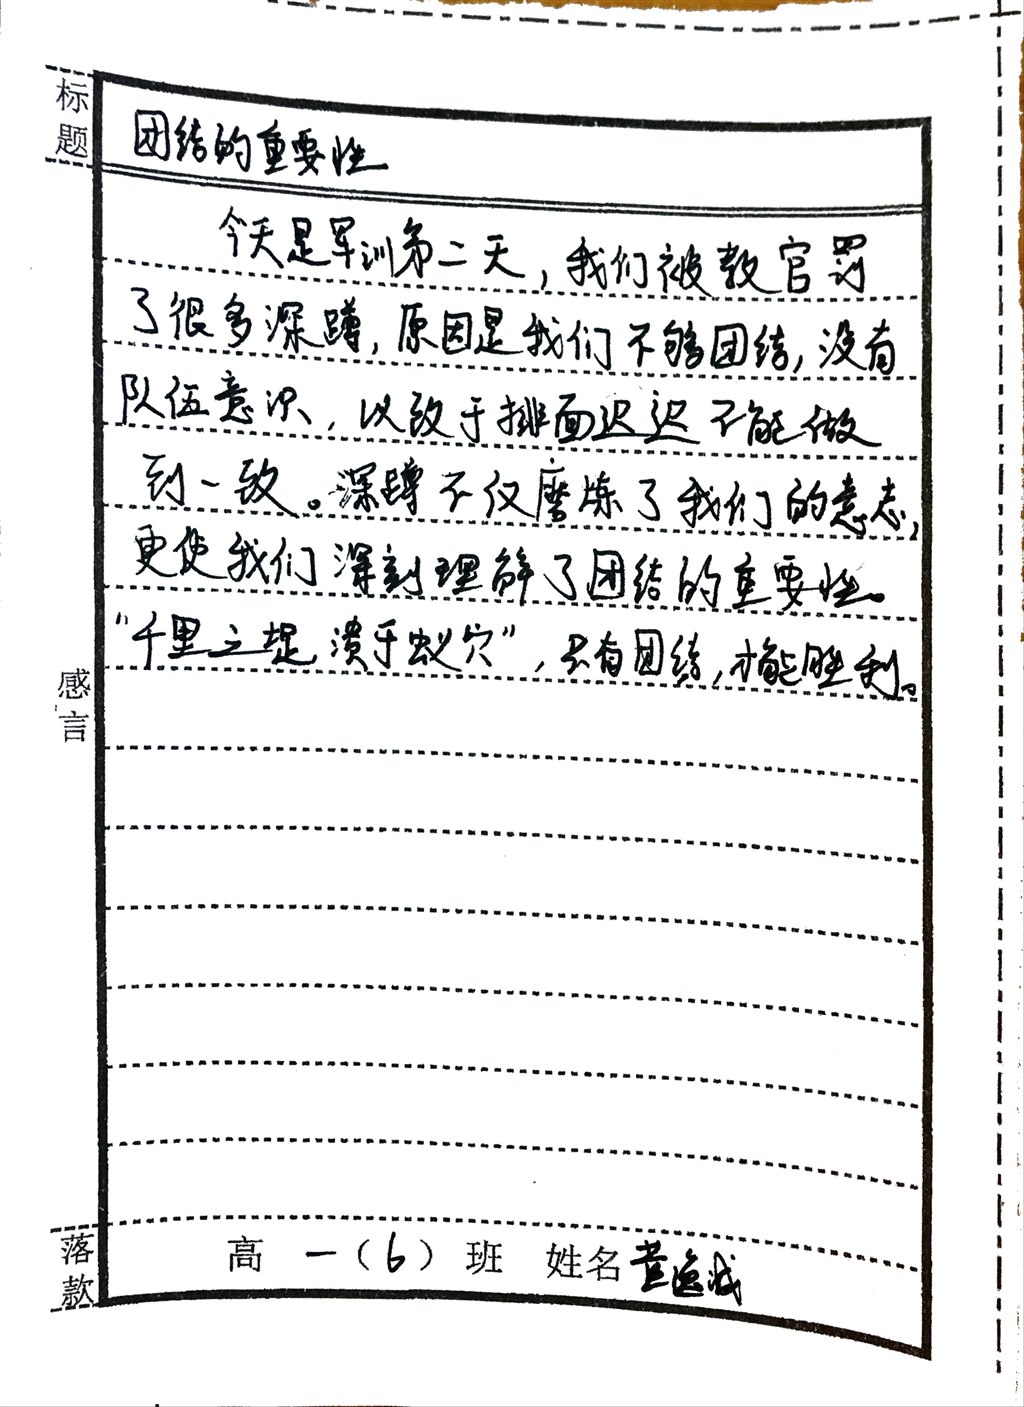 标题
团结的重要性
今天是军训第二天，我们被教官罚
了很多深蹲，原因是我们不够团结，没有
队伍意识，以致于排面迟迟不能做
到一致。深蹲不仅磨炼了我们的意志，
更使我们深刻理解了团结的重要性。
“千里之堤溃于蚁穴”，只有团结，才能胜利。
感言
落款
高一（6）班 姓名黄逸成